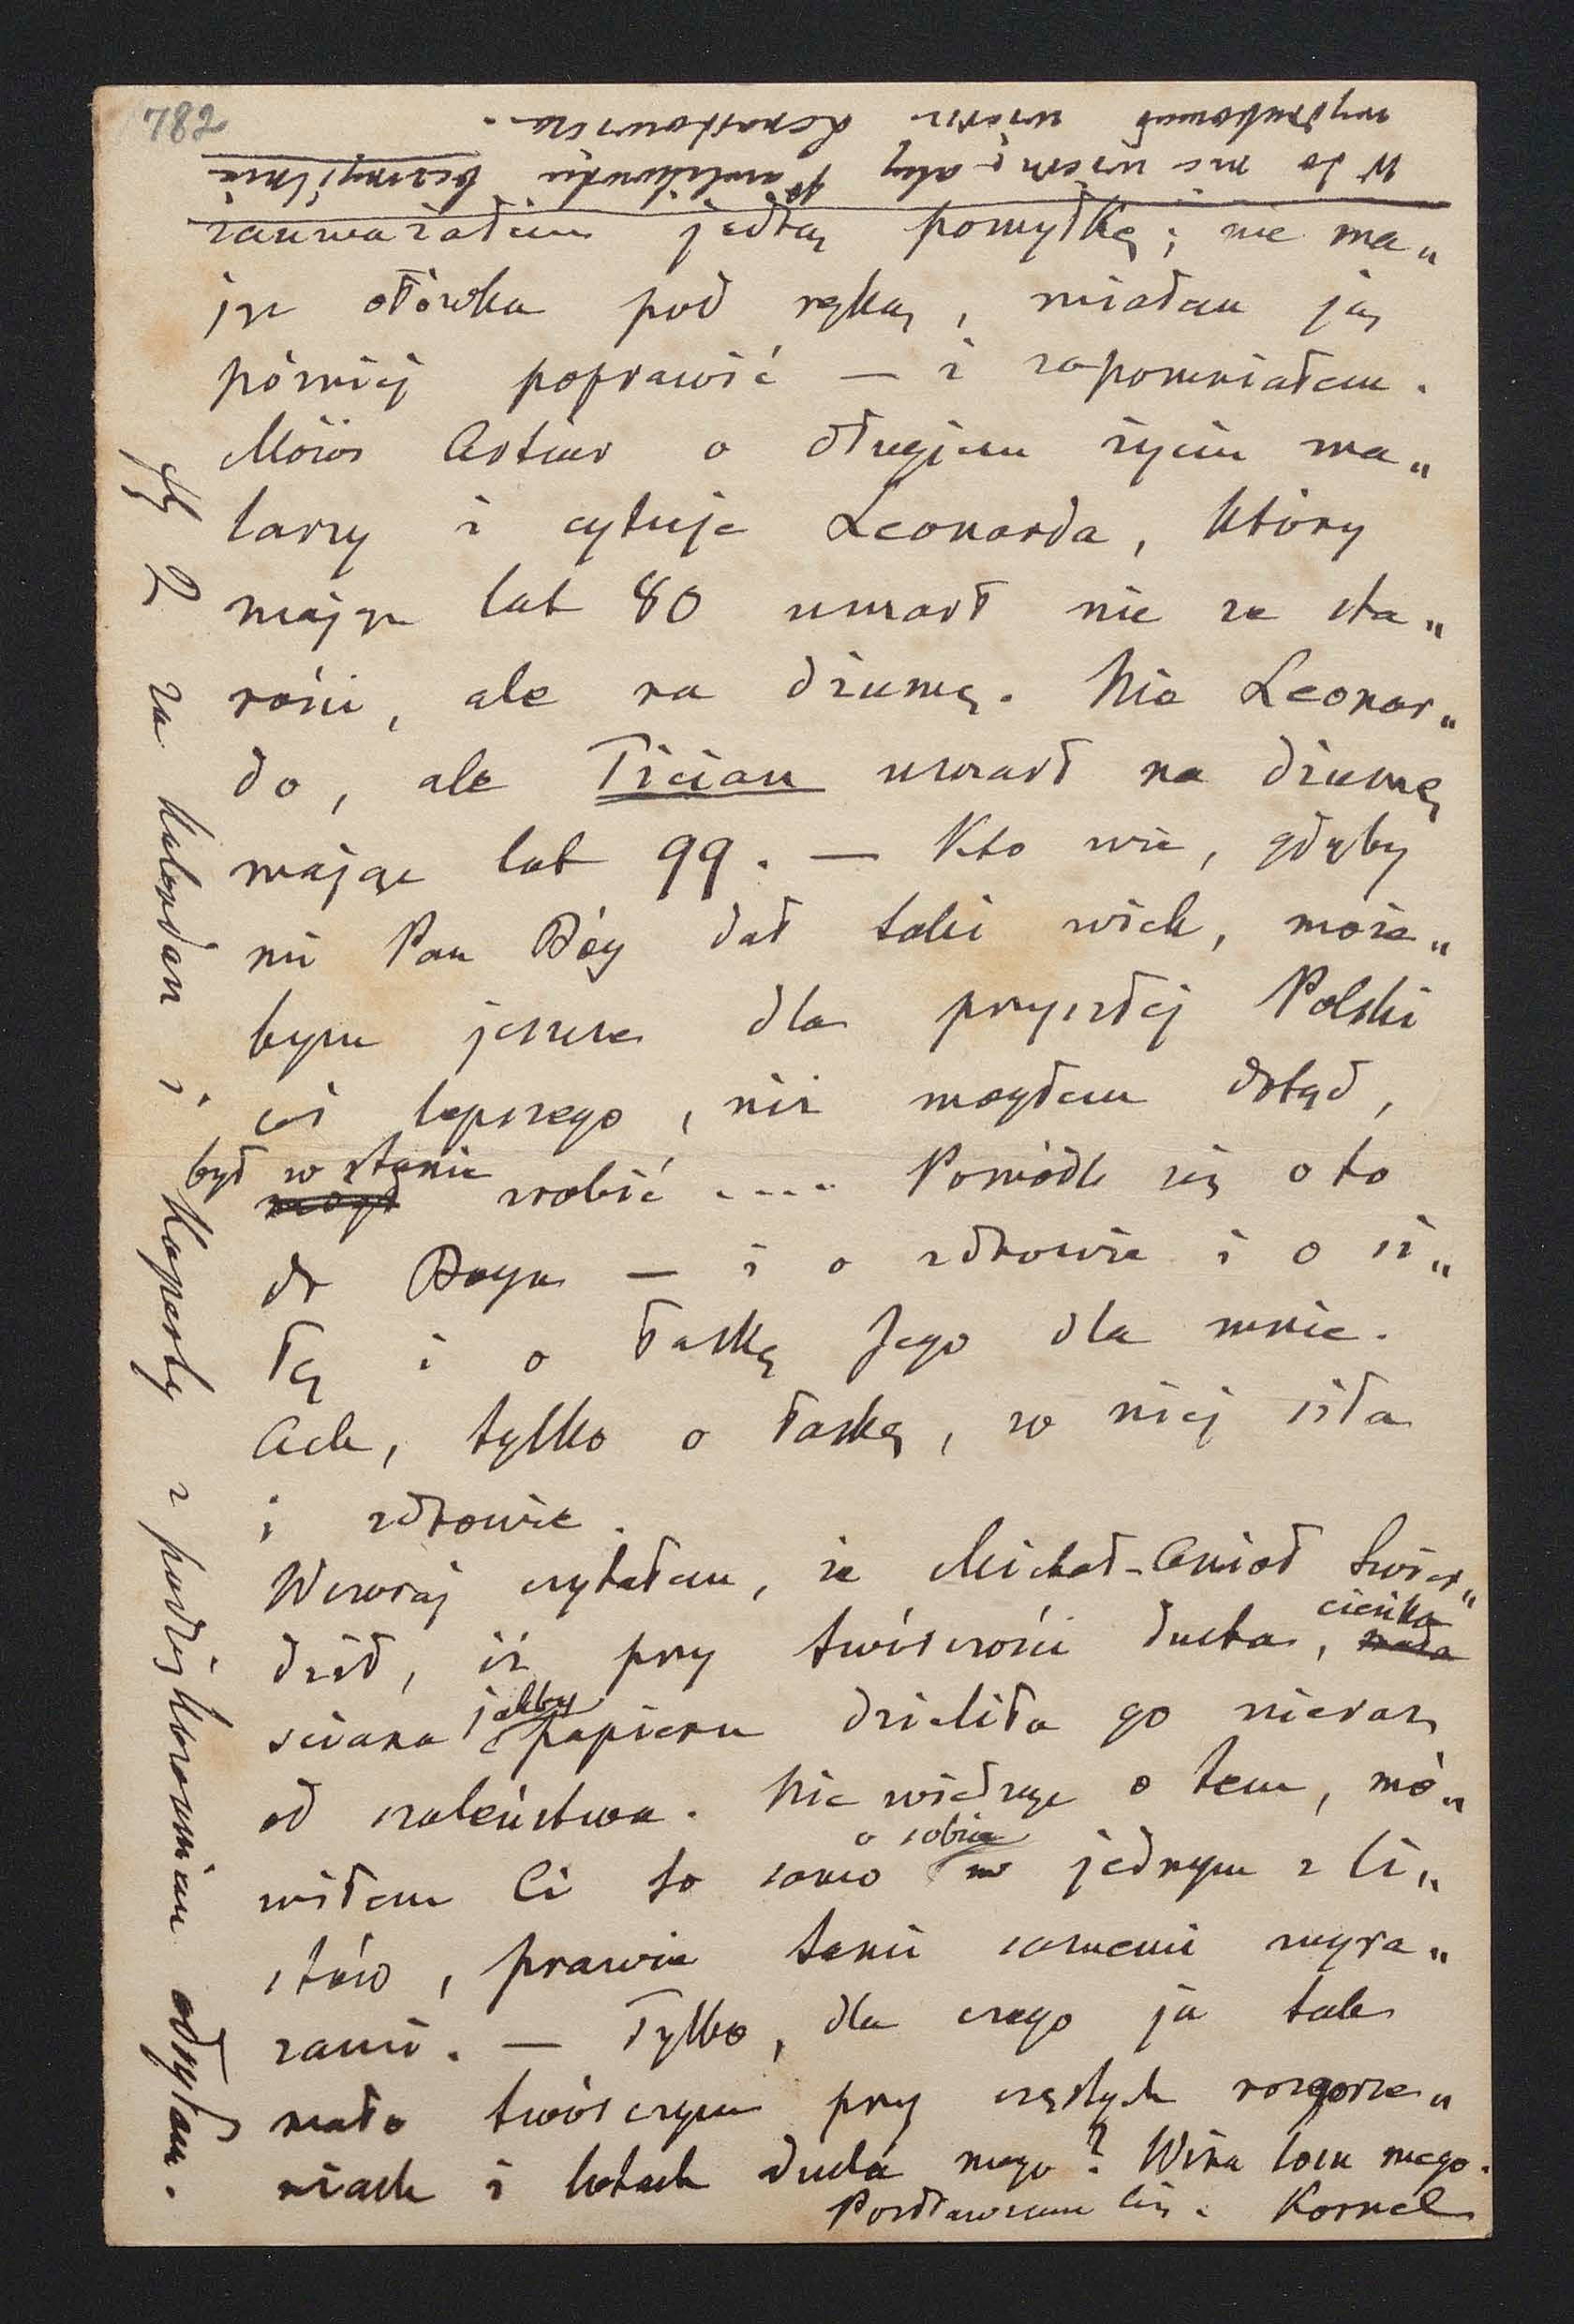 782
W to nie wierzę aby Pawlikowski bezmyślnie
wydrukował wiersz Lenartowicza.
zauważałem jedną pomyłkę; nie ma„
jąc ołówka pod ręką, miałem ją
pózniej poprawić — i zapomniałem.
Mówi Artur o długiem życiu ma„
larzy i cytuje Leonarda, który
mając lat 80 umarł nie ze sta„
rości, ale na dżumę. Nie Leonar„
do, ale Tician umarł na dżumę
mając lat 99. — Kto wie, gdyby
mi Pan Bóg dał taki wiek, może„
bym jeszcze dla przyszłej Polski
coś lepszego, niż mogłem dotąd,
był w stanie
mógł zrobić .... Pomódl się o to
do Boga — i o zdrowie i o si„
łę i o łaskę Jego dla mnie.
Ach, tylko o łaskę, w niej siła
i zdrowie.
Wczoraj czytałem, że Michał-Anioł twier„
dził, iż przy twórczości ducha, mała cieńka
sciana jakby papieru dzieliła go nieraz
od szaleństwa. Nie wiedząc o tem, mó„
wiłem Ci to samo o sobie w jednym z li„
stów, prawie temi samemi wyra„
zami. — Tylko, dla czego ja tak
mało twórczym przy częstych rozgorze„
niach i lotach ducha mego? Wina losu mego.
Pozdrawiam Cię. Kornel
złr 2 za kalendarz i Koperty z podziękowaniem odsyłam.